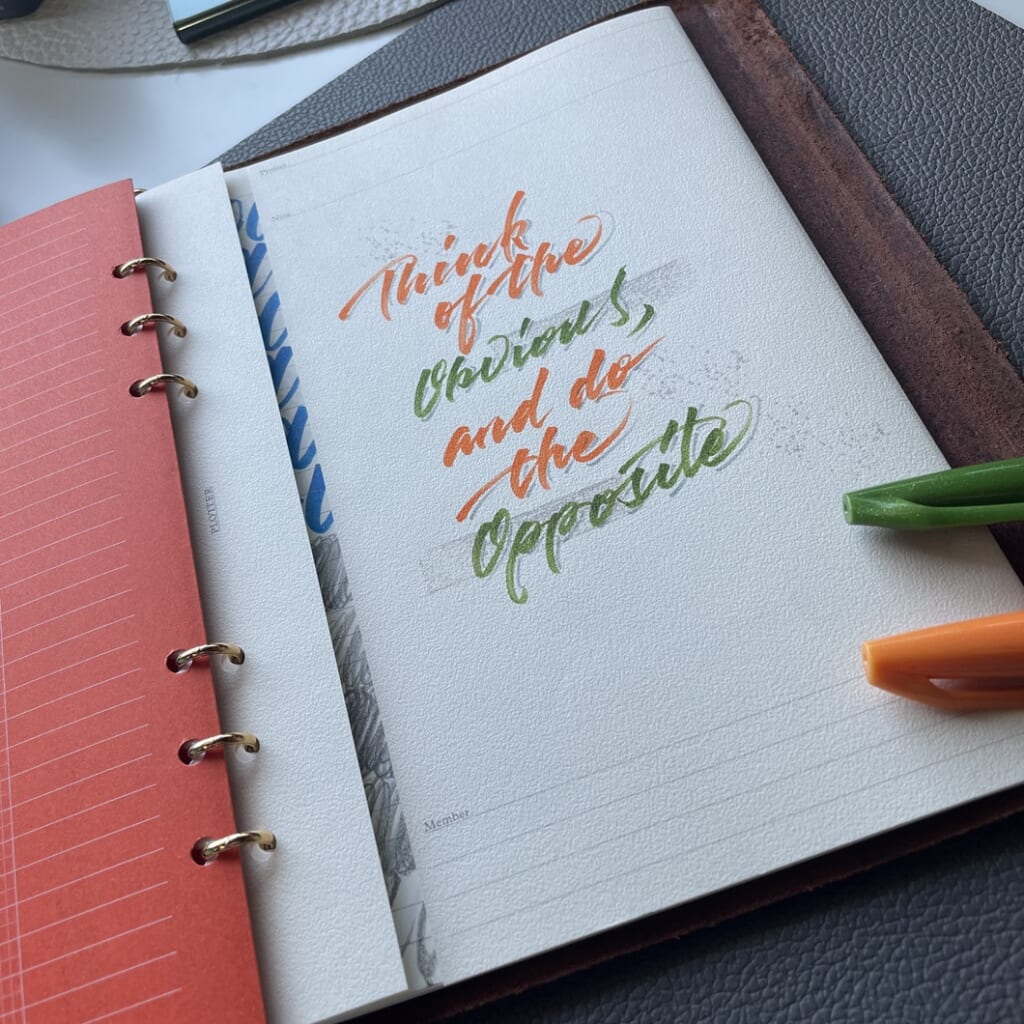 Project
Note
Think
of the
Obvious,
and do
the
Opposite
Member
PLOTTER